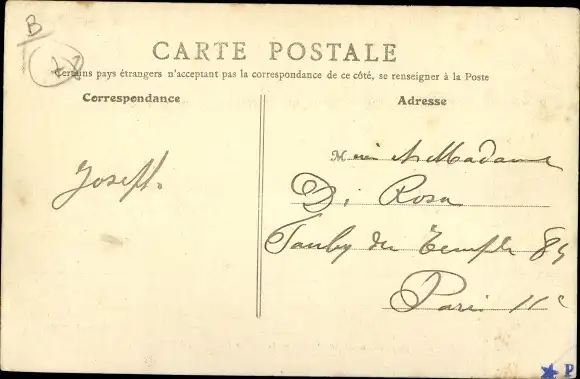 B
CARTE POSTALE
Certains pays étrangers n'acceptant pas la correspondance de ce côté, se renseigner à la Poste
Correspondance
Adresse
Joseph.
et Madame
Di Rosa
Faubg du Temple
Paris 11e
P